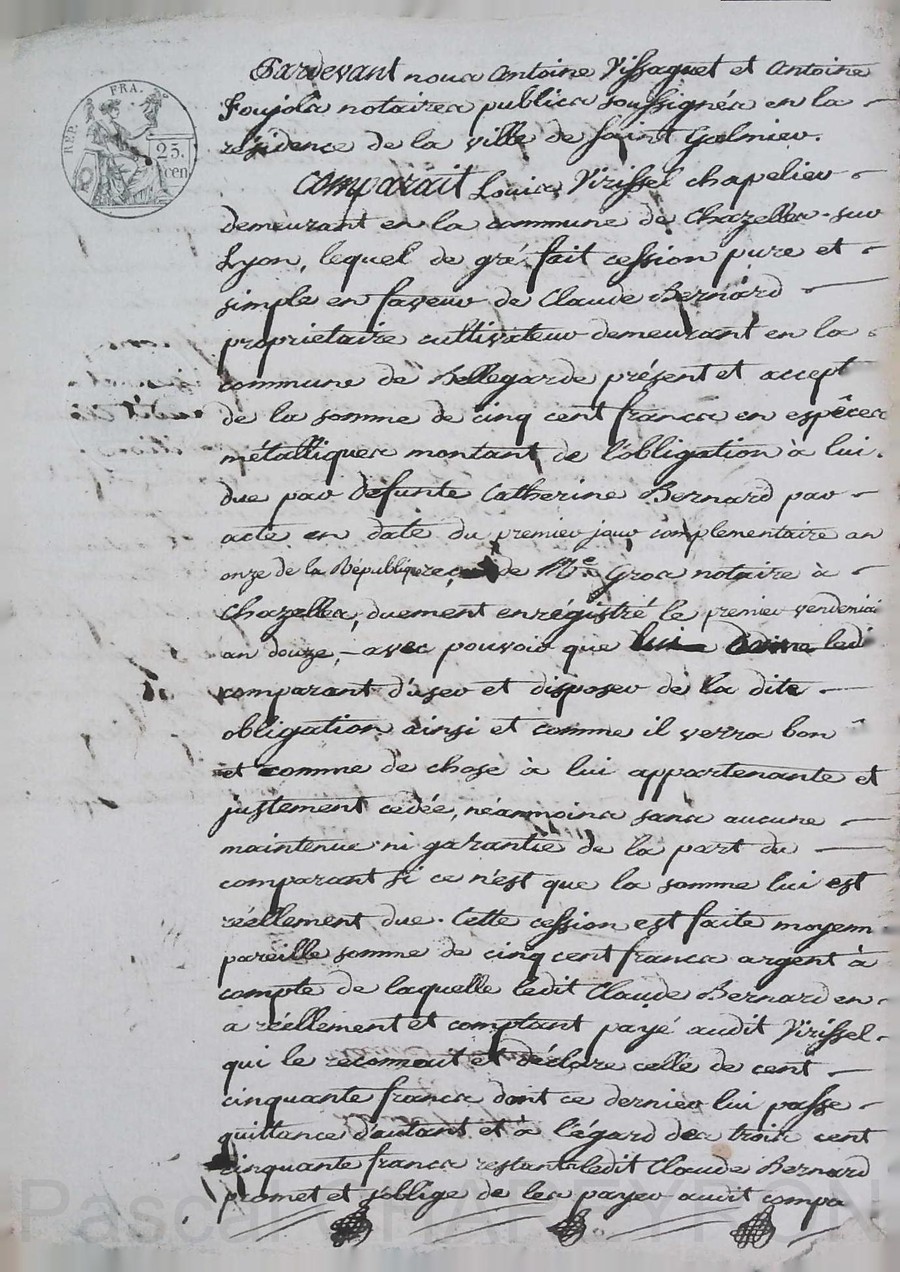 REP. FRA.
25.
cen
Pardevant nous Antoine Vissaguet et Antoine
Foujols notaires publics soussignés en la
résidence de la ville de saint Galmier.
Comparait Louis Virissel chapelier
demeurant en la commune de Chazelles-sur
Lyon, lequel de gré fait cession pure et
simple en faveur de Claude Bernard
proprietaire cultivateur demeurant en la
commune de Bellegarde présent et accept
de la somme de cinq cent francs en espèces
métalliques montant de l'obligation à lui
due par défunte Catherine Bernard par
acte en date du premier jour complémentaire an
onze de la République reçu de Me. Gros notaire à
Chazelles, duement enrégistré le premier vendemiai
an douze, avec pouvoir que ledi
comparant d'user et disposer de la dite
obligation ainsi et comme il verra bon
et comme de chose à lui appartenante et
justement cedée, néanmoins sans aucune
maintenue ni garantie de la part du
comparant si ce n'est que la somme lui est
réellement due. Cette cession est faite moyenn
pareille somme de cinq cent francs argent à
compte de laquelle ledit Claude Bernard en
a réellement et comptant payé audit Virissel
qui le reconnait et déclare celle de cent
cinquante francs dont ce dernier lui passe
quittance d'autant et à l'égard des trois cent
cinquante francs restants ledit Claude Bernard
promet et s'oblige de les payer audit compa
Pascal CHAREYRON